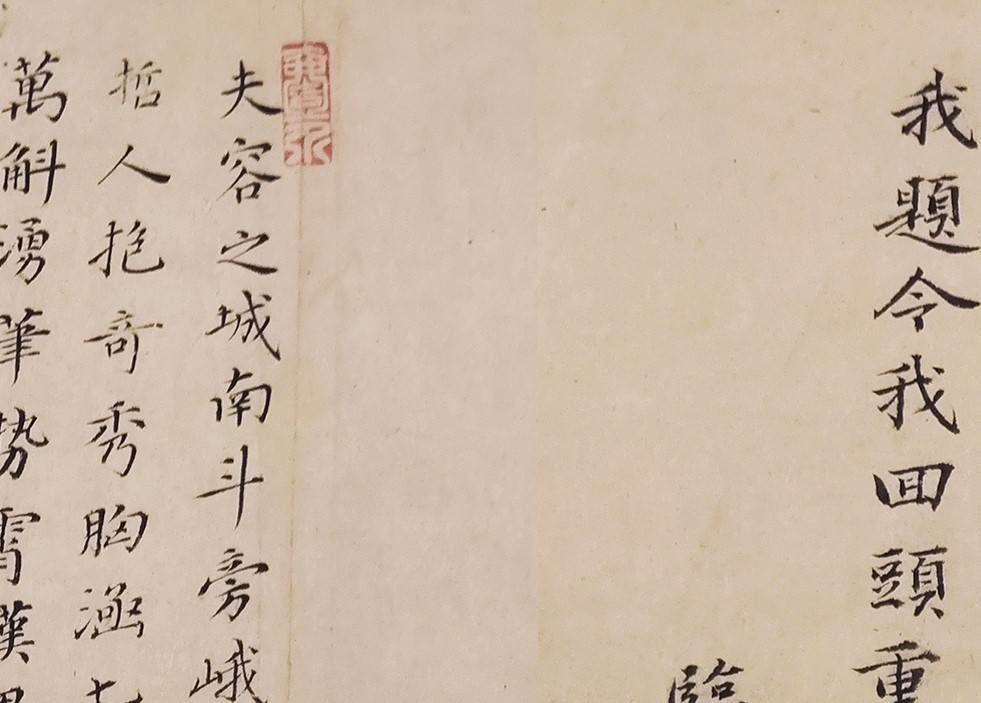 我題令我回頭重
臨
夫容之城南斗旁峨
哲人抱奇秀胸涵
萬斛湧筆勢霄漢